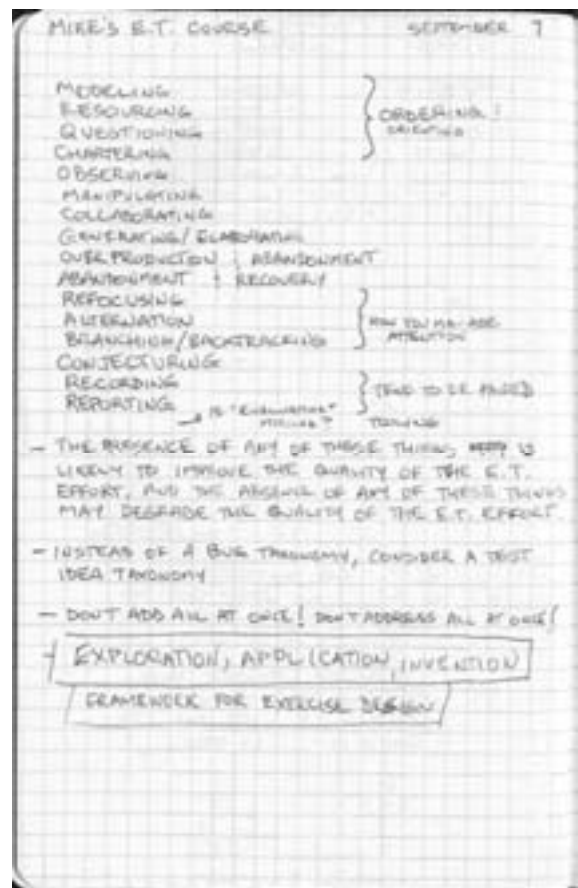 MIKE'S E.T. COURSE SEPTEMBER 7
MODELING
RESOURCING
QUESTIONING
ORDERING!
ORIENTING
CHARTERING
OBSERVING
MANIPULATING
COLLABORATING
GENERATING/ELABORATING
OVERPRODUCTION ABANDONMENT
ABANDONMENT RECOVERY
REFOCUSING
ALTERNATION
BRANCHING/BACKTRACKING
HOW YOU MANAGE
ATTENTION
CONJECTURING
RECORDING
REPORTING
TEND TO BE PAIRED
IS "EVALUATING"
MISSING?
- THE PRESENCE OF ANY OF THESE THINGS IS
LIKELY TO IMPROVE THE QUALITY OF THE E.T.
EFFORT, AND THE ABSENCE OF ANY OF THESE THINGS
MAY DEGRADE THE QUALITY OF THE E.T. EFFORT.
- INSTEAD OF A BUG TAXONOMY, CONSIDER A TEST
IDEA TAXONOMY
- DON'T ADD ALL AT ONCE! DON'T ADDRESS ALL AT ONCE!
- EXPLORATION, APPLICATION, INVENTION
FRAMEWORK FOR EXERCISE DESIGN